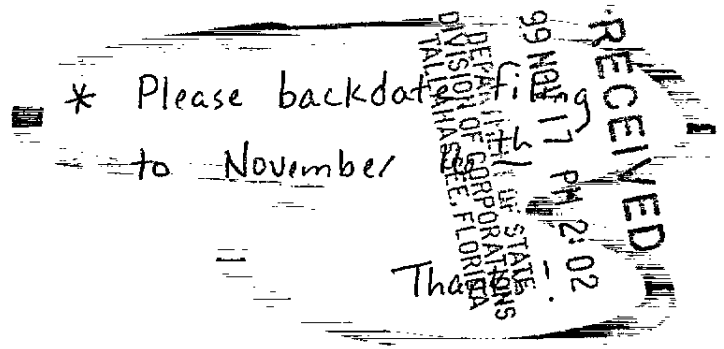 * Please backdate filing
to November
Thanks!
RECEIVED
99 NOV 17 PM 2:02
DEPARTMENT OF STATE
DIVISION OF CORPORATIONS
TALLAHASSEE, FLORIDA